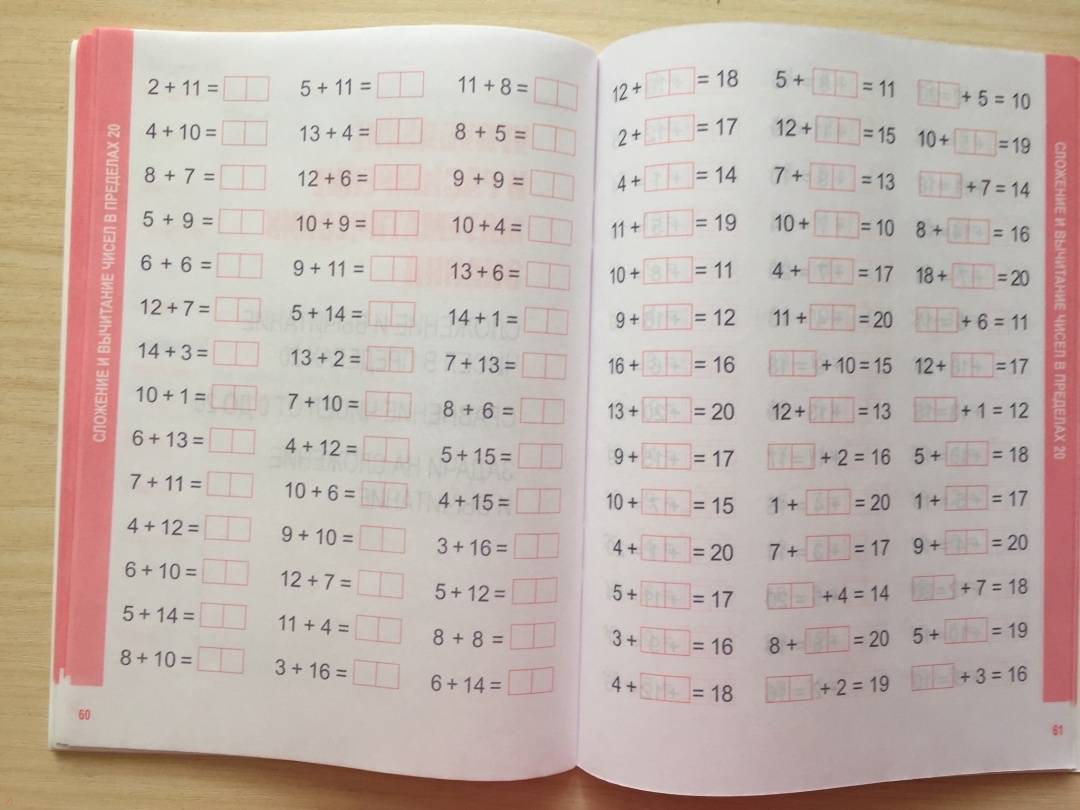 СЛОЖЕНИЕ И ВЫЧИТАНИЕ ЧИСЕЛ В ПРЕДЕЛАХ 20
2 + 11 = 5 + 11 = 11 + 8 =
4 + 10 = 13 + 4 = 8 + 5 =
8 + 7 = 12 + 6 = 9 + 9 =
5 + 9 = 10 + 9 = 10 + 4 =
6 + 6 = 9 + 11 = 13 + 6 =
12 + 7 = 5 + 14 = 14 + 1 =
14 + 3 = 13 + 2 = 7 + 13 =
10 + 1 = 7 + 10 = 8 + 6 =
6 + 13 = 4 + 12 = 5 + 15 =
7 + 11 = 10 + 6 = 4 + 15 =
4 + 12 = 9 + 10 = 3 + 16 =
6 + 10 = 12 + 7 = 5 + 12 =
5 + 14 = 11 + 4 = 8 + 8 =
8 + 10 = 3 + 16 = 6 + 14 =
60
12 + = 18 5 + = 11 + 5 = 10
2 + = 17 12 + = 15 10 + = 19
4 + = 14 7 + = 13 + 7 = 14
11 + = 19 10 + = 10 8 + = 16
10 + = 11 4 + = 17 18 + = 20
9 + = 12 11 + = 20 + 6 = 11
16 + = 16 + 10 = 15 12 + = 17
13 + = 20 12 + = 13 + 1 = 12
9 + = 17 + 2 = 16 5 + = 18
10 + = 15 1 + = 20 1 + = 17
4 + = 20 7 + = 17 9 + = 20
5 + = 17 + 4 = 14 + 7 = 18
3 + = 16 8 + = 20 5 + = 19
4 + = 18 + 2 = 19 + 3 = 16
СЛОЖЕНИЕ И ВЫЧИТАНИЕ ЧИСЕЛ В ПРЕДЕЛАХ 20
61